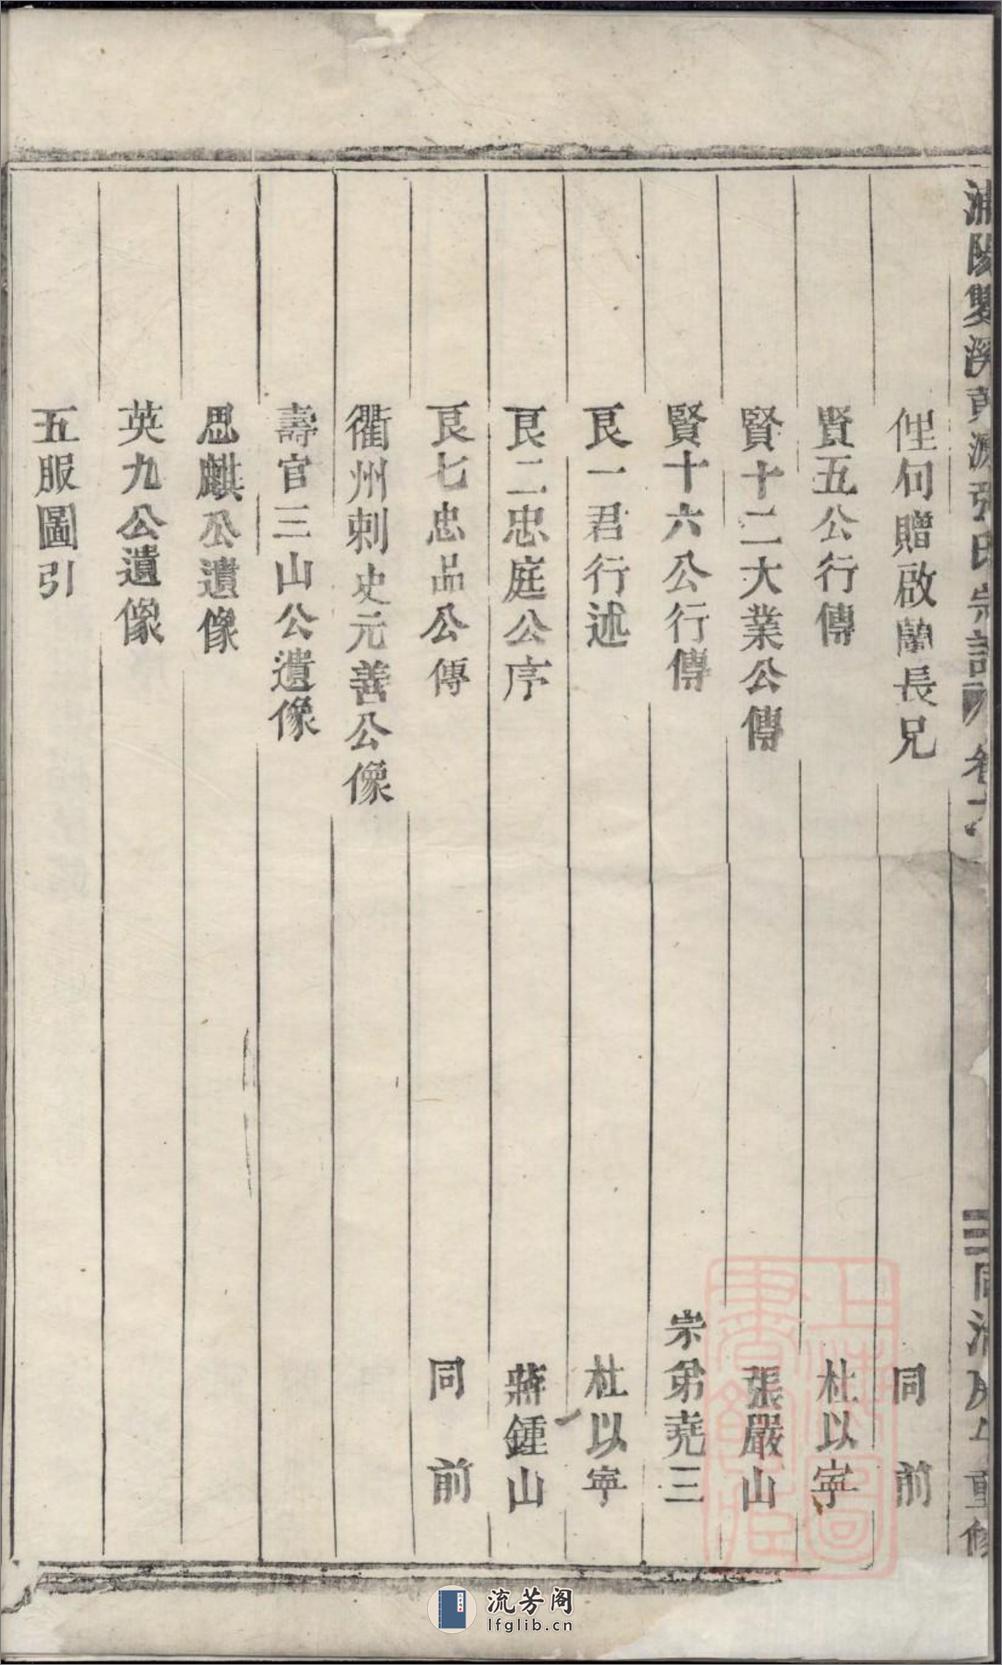 浦陽雙溪黃源張氏宗譜 卷
三 同治庚午重修
俚句贈啟蘭長兄 同前
賢五公行傳 杜以寧
賢十二大業公傳 張嚴山
賢十六公行傳 宗弟堯三
良一君行述 杜以寧
良二忠庭公序 蔣鍾山
良七忠品公傳 同前
衢州刺史元善公像
壽官三山公遺像
思麒公遺像
英九公遺像
五服圖引
上海圖書館藏
流芳阁
lfglib.cn